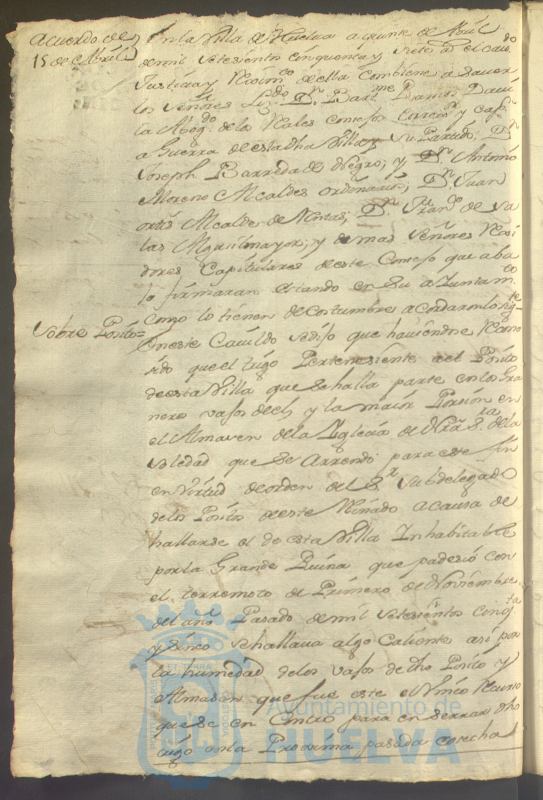 Acuerdo de
15 de Abril
En la Villa de Huelva a quinse de Abril
de mil setesientos cinquenta y siete as el cavdo
Justicia y Rexim.to de ella Combiene a saver
los señores Lz.do D.n Bart.me Ramos Davi
la Abog.do de los Reales consejos Correx.or y cap.n
a Guerra de esta dha Villa y su Partido; D.n
Joseph Barreda de Negro; y D.n Antonio
Moreno Alcaldes ordinarios; D.n Juan
ortis Alcalde de Rentas; D.n Fran.co de Sa
las Alguasil mayor; y demas señores Rexi
dores Capitulares de este Consejo que aba
xo firmaran estando en su Aiuntam.to
como lo tienen de costumbre acordaron lo sig.te
Sobre Posito=
En este Cavildo se dijo que haviendose Recono
sido que el trigo Pertenesiente a el Posito
de esta Villa que se halla parte en los Gra
neros vasos de el, y la maior Porsion en
el Almasen de la Iglesia de Nrâ S.ra de la
soledad que se Arrendo para este fin
en virtud de orden del S.r Subdelegado
de los Positos de este Reinado a causa de
hallarse el de esta Villa Inhabitable
por la Grande Ruina que padesió con
el terremoto de Primero de Noviembre
del año Pasado de mil setesientos cinq.ta
y sinco se hallava algo Caliente asi por
la humedad de los vasos de dho Posito y
Almasen que fue este el Unico
que se en Contro para en serrar dho
trigo en la Proxima pasada cosecha
Ayuntamiento de
HUELVA